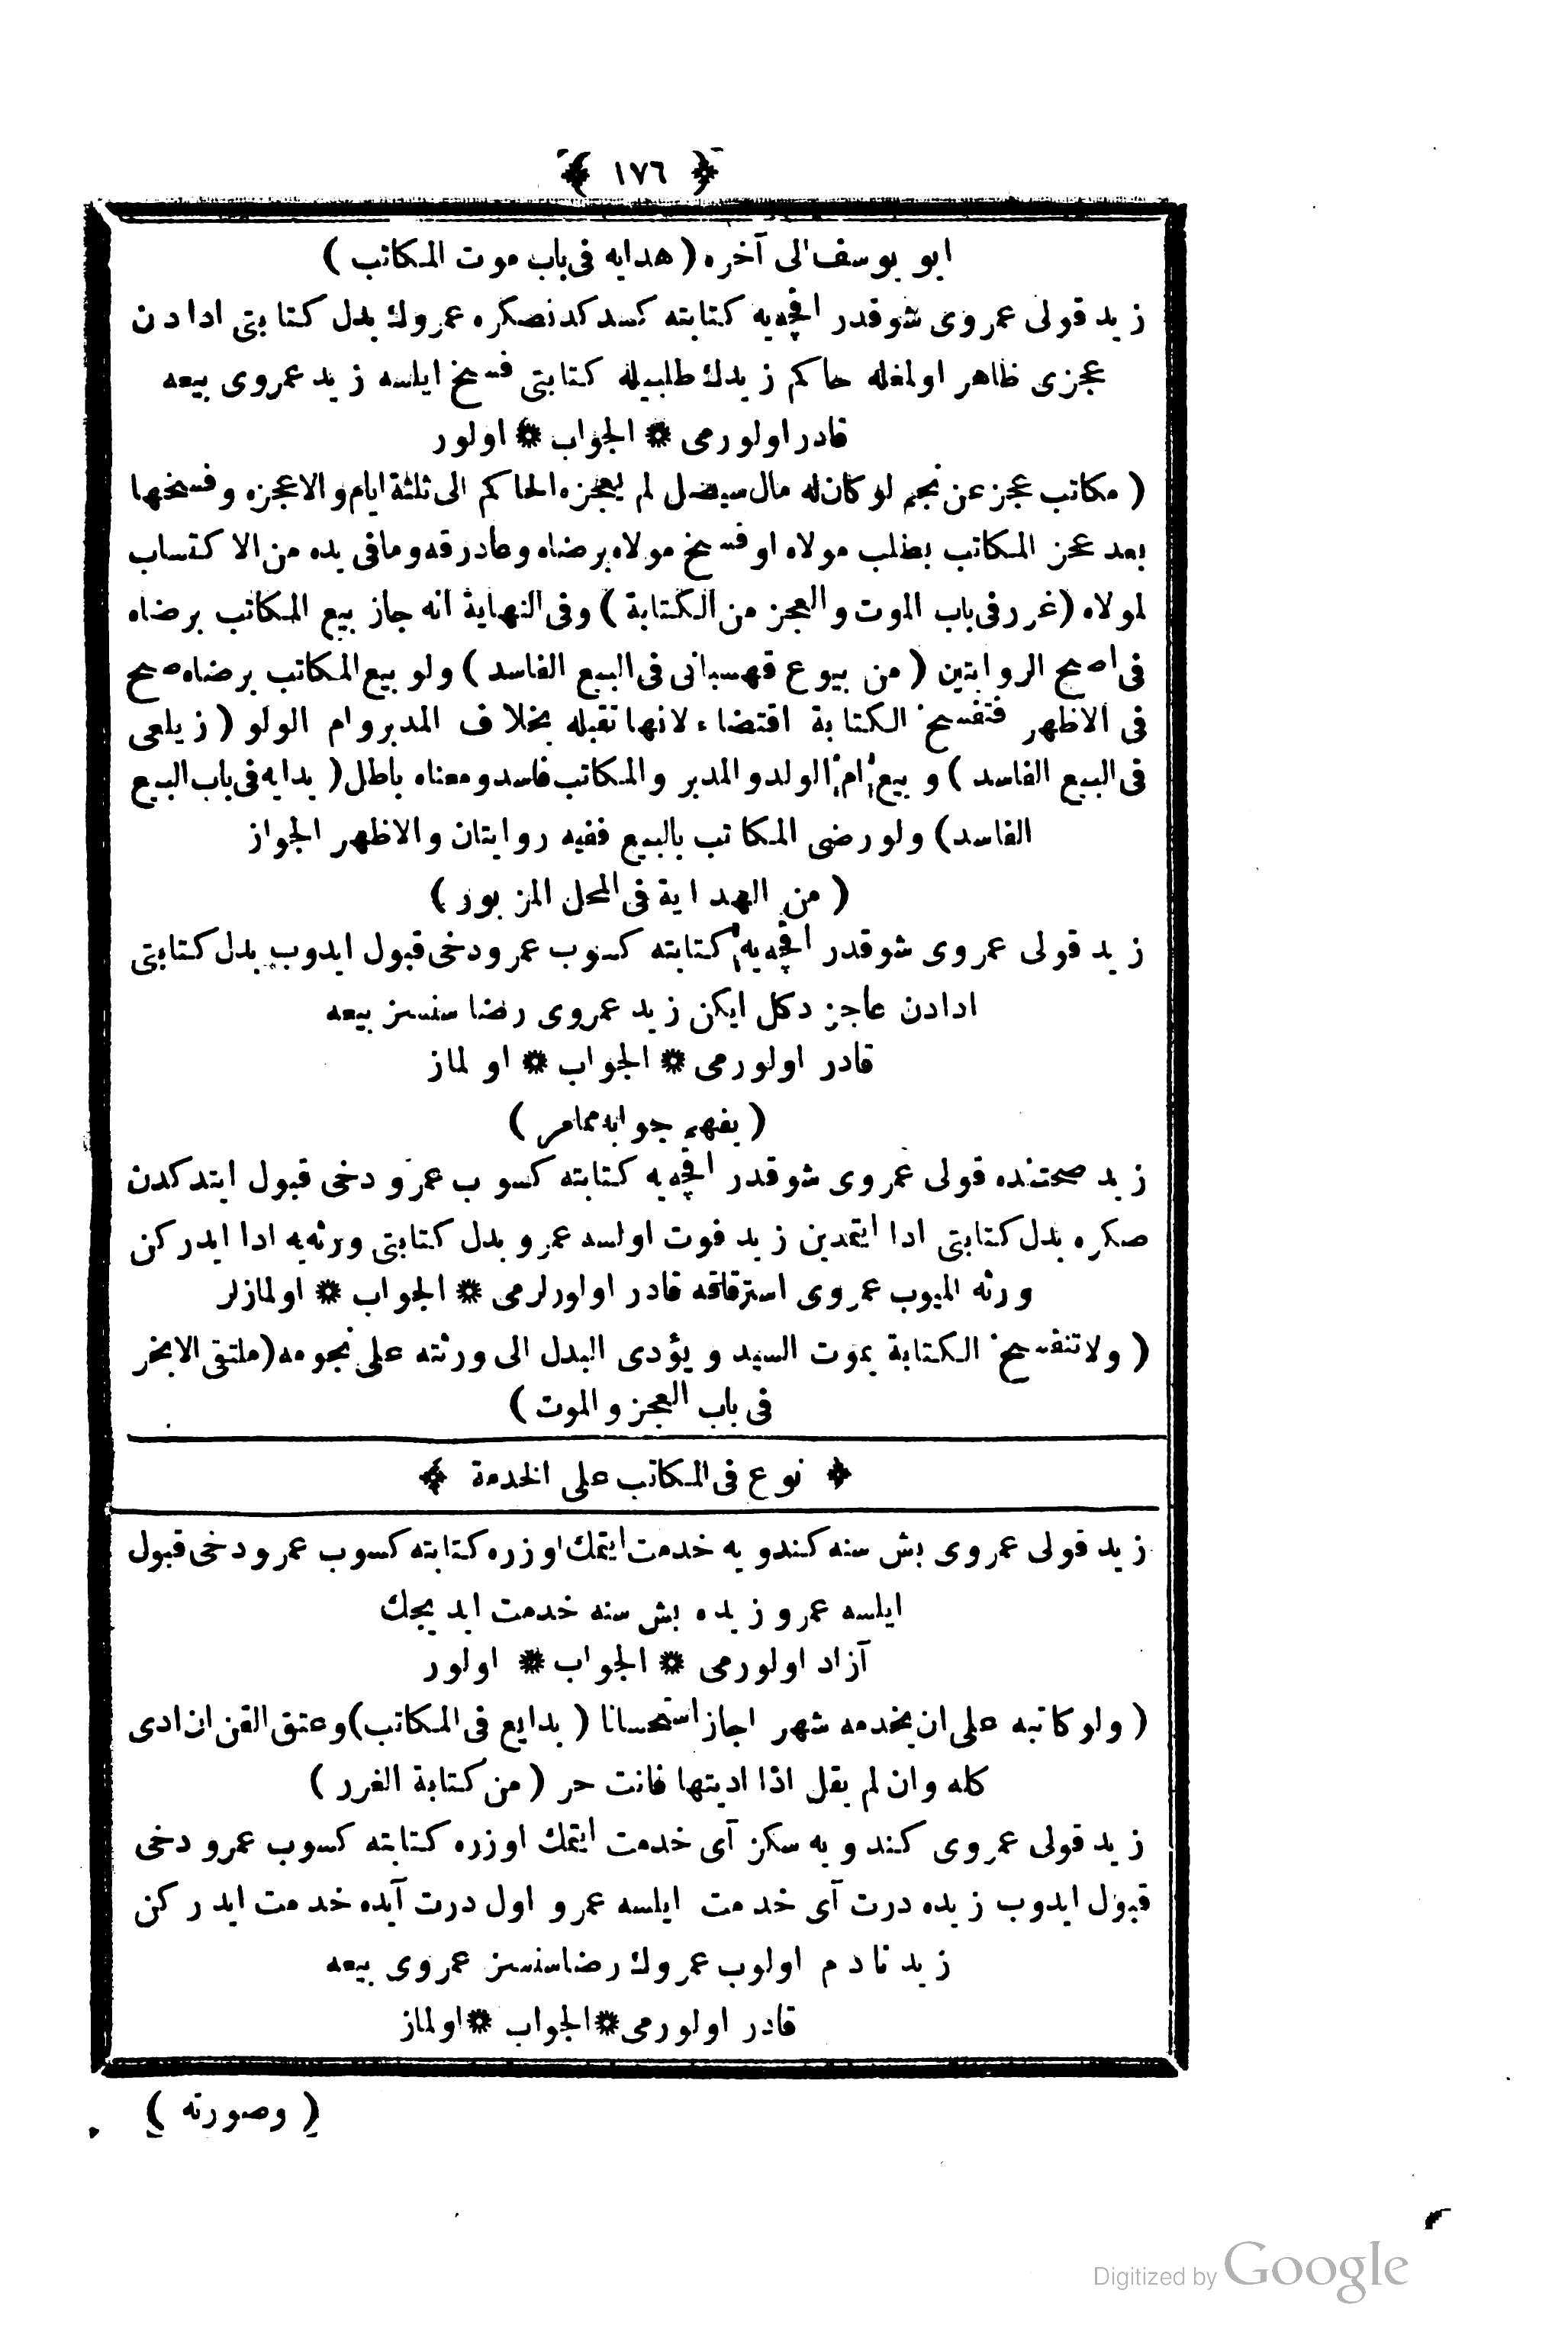 ﴿ ١٧٦ ﴾
ابو يوسف الى آخره ( هدايه فى باب موت المكاتب )
زيد قولى عمروى شوقدر اقچه‌يه كتابته كسدكدنصكره عمروك بدل كتابتى ادادن
عجزى ظاهر اولمغله حاكم زيدك طلبيله كتابتى فسخ ايلسه زيد عمروى بيعه
قادر اولورمى * الجواب * اولور
( مكاتب عجز عن نجم لو كان له مال سيصل لم يعجزه الحاكم الى ثلثة ايام والا عجزه وفسخها
بعد عجز المكاتب بطلب مولاه او فسخ مولاه برضاه وعاد رقه ومافى يده من الاكتساب
لمولاه ( غرر فى باب الموت والعجز من الكتابة ) وفى النهاية انه جاز بيع المكاتب برضاه
فى اصح الروايتين ( من بيوع قهستانى فى البيع الفاسد ) ولو بيع المكاتب برضاه صح
فى الاظهر فتفسخ الكتابة اقتضاء لانها تقبله بخلاف المدبر وام الولو ( زيلعى
فى البيع الفاسد ) و بيع ام الولد والمدبر والمكاتب فاسد ومعناه باطل ( بدايه فى باب البيع
الفاسد ) ولو رضى المكاتب بالبيع ففيه روايتان والاظهر الجواز
( من الهداية فى المحل المزبور )
زيد قولى عمروى شوقدر اقچه‌يه كتابته كسوب عمرو دخى قبول ايدوب بدل كتابتى
ادادن عاجز دكل ايكن زيد عمروى رضاسنسز بيعه
قادر اولورمى * الجواب * اولماز
( يفهم جوابه ممامر )
زيد صحتنده قولى عمروى شوقدر اقچه‌يه كتابته كسوب عمرو دخى قبول ايتدكدن
صكره بدل كتابتى ادا ايتمدين زيد فوت اولسه عمرو بدل كتابتى ورثه‌يه ادا ايدركن
ورثه الميوب عمروى استرقاقه قادر اولورلرمى * الجواب * اولمازلر
( ولا تنفسخ الكتابة بموت السيد و يؤدى البدل الى ورثته على نجومه ( ملتقى الابحر
فى باب العجز والموت )
﴿ نوع فى المكاتب على الخدمة ﴾
زيد قولى عمروى بش سنه كندويه خدمت ايتمك اوزره كتابته كسوب عمرو دخى قبول
ايلسه عمرو زيده بش سنه خدمت ايديجك
آزاد اولورمى * الجواب * اولور
( ولو كاتبه على ان يخدمه شهرا جاز استحسانا ( بدايع فى المكاتب ) وعتق القن ان ادى
كله وان لم يقل اذا اديتها فانت حر ( من كتابة الغرر )
زيد قولى عمروى كندويه سكز آى خدمت ايتمك اوزره كتابته كسوب عمرو دخى
قبول ايدوب زيده درت آى خدمت ايلسه عمرو اول درت آيده خدمت ايدركن
زيد نادم اولوب عمروك رضاسنسز عمروى بيعه
قادر اولورمى * الجواب * اولماز
( وصورته )
Digitized by Google